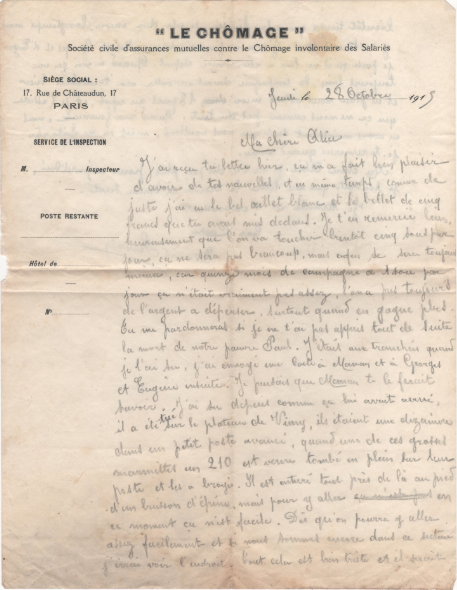 " LE CHÔMAGE "
Société civile d'assurances mutuelles contre le Chômage involontaire des Salariés
SIÈGE SOCIAL :
17, Rue de Châteaudun, 17
PARIS
Jeudi le 28 Octobre 1915
SERVICE DE L'INSPECTION
M. Inspecteur
POSTE RESTANTE
Hôtel de
N°
Ma chère Alice
J'ai reçu ta lettre hier, ça m'a fait bien plaisir
d'avoir de tes nouvelles, et en même temps, comme de
juste j'ai eu le bel œillet blanc et le billet de cinq
francs que tu avais mis dedans. Je t'en remercie bien,
heureusement que l'on va toucher bientôt cinq sous par
jour, ça ne sera pas beaucoup, mais enfin ce sera toujours
mieux, car quinze mois de campagne à 1 sou par
jour ça n'était vraiment pas assez, l'on a pas toujours
de l'argent a dépenser, surtout quand on gagne plus.
Tu me pardonneras si je ne t'ai pas appris tout de suite
la mort de notre pauvre Paul. J'étais aux tranchées quand
je l'ai su, j'ai envoyé une lettre à Maman et à Georges
et Eugène ensuite. Je pensais que Maman te le ferait
savoir. J'ai su depuis comme ça lui avait arrivé,
il a été tué sur le plateau de Vimy, ils étaient une dizaine
dans un petit poste avancé, quand une de ces grosses
marmittes un 210 est venue tombé en plein sur leur
poste et les a broyés. Il est enterré tout près de là au pied
d'un buisson d'épine, mais pour y aller en
ce moment ça n'est facile. Dès qu'on pourra y aller
assez facilement et si nous sommes encore dans ce secteur
j'irai voir l'endroit. Tout cela est bien triste et il serait